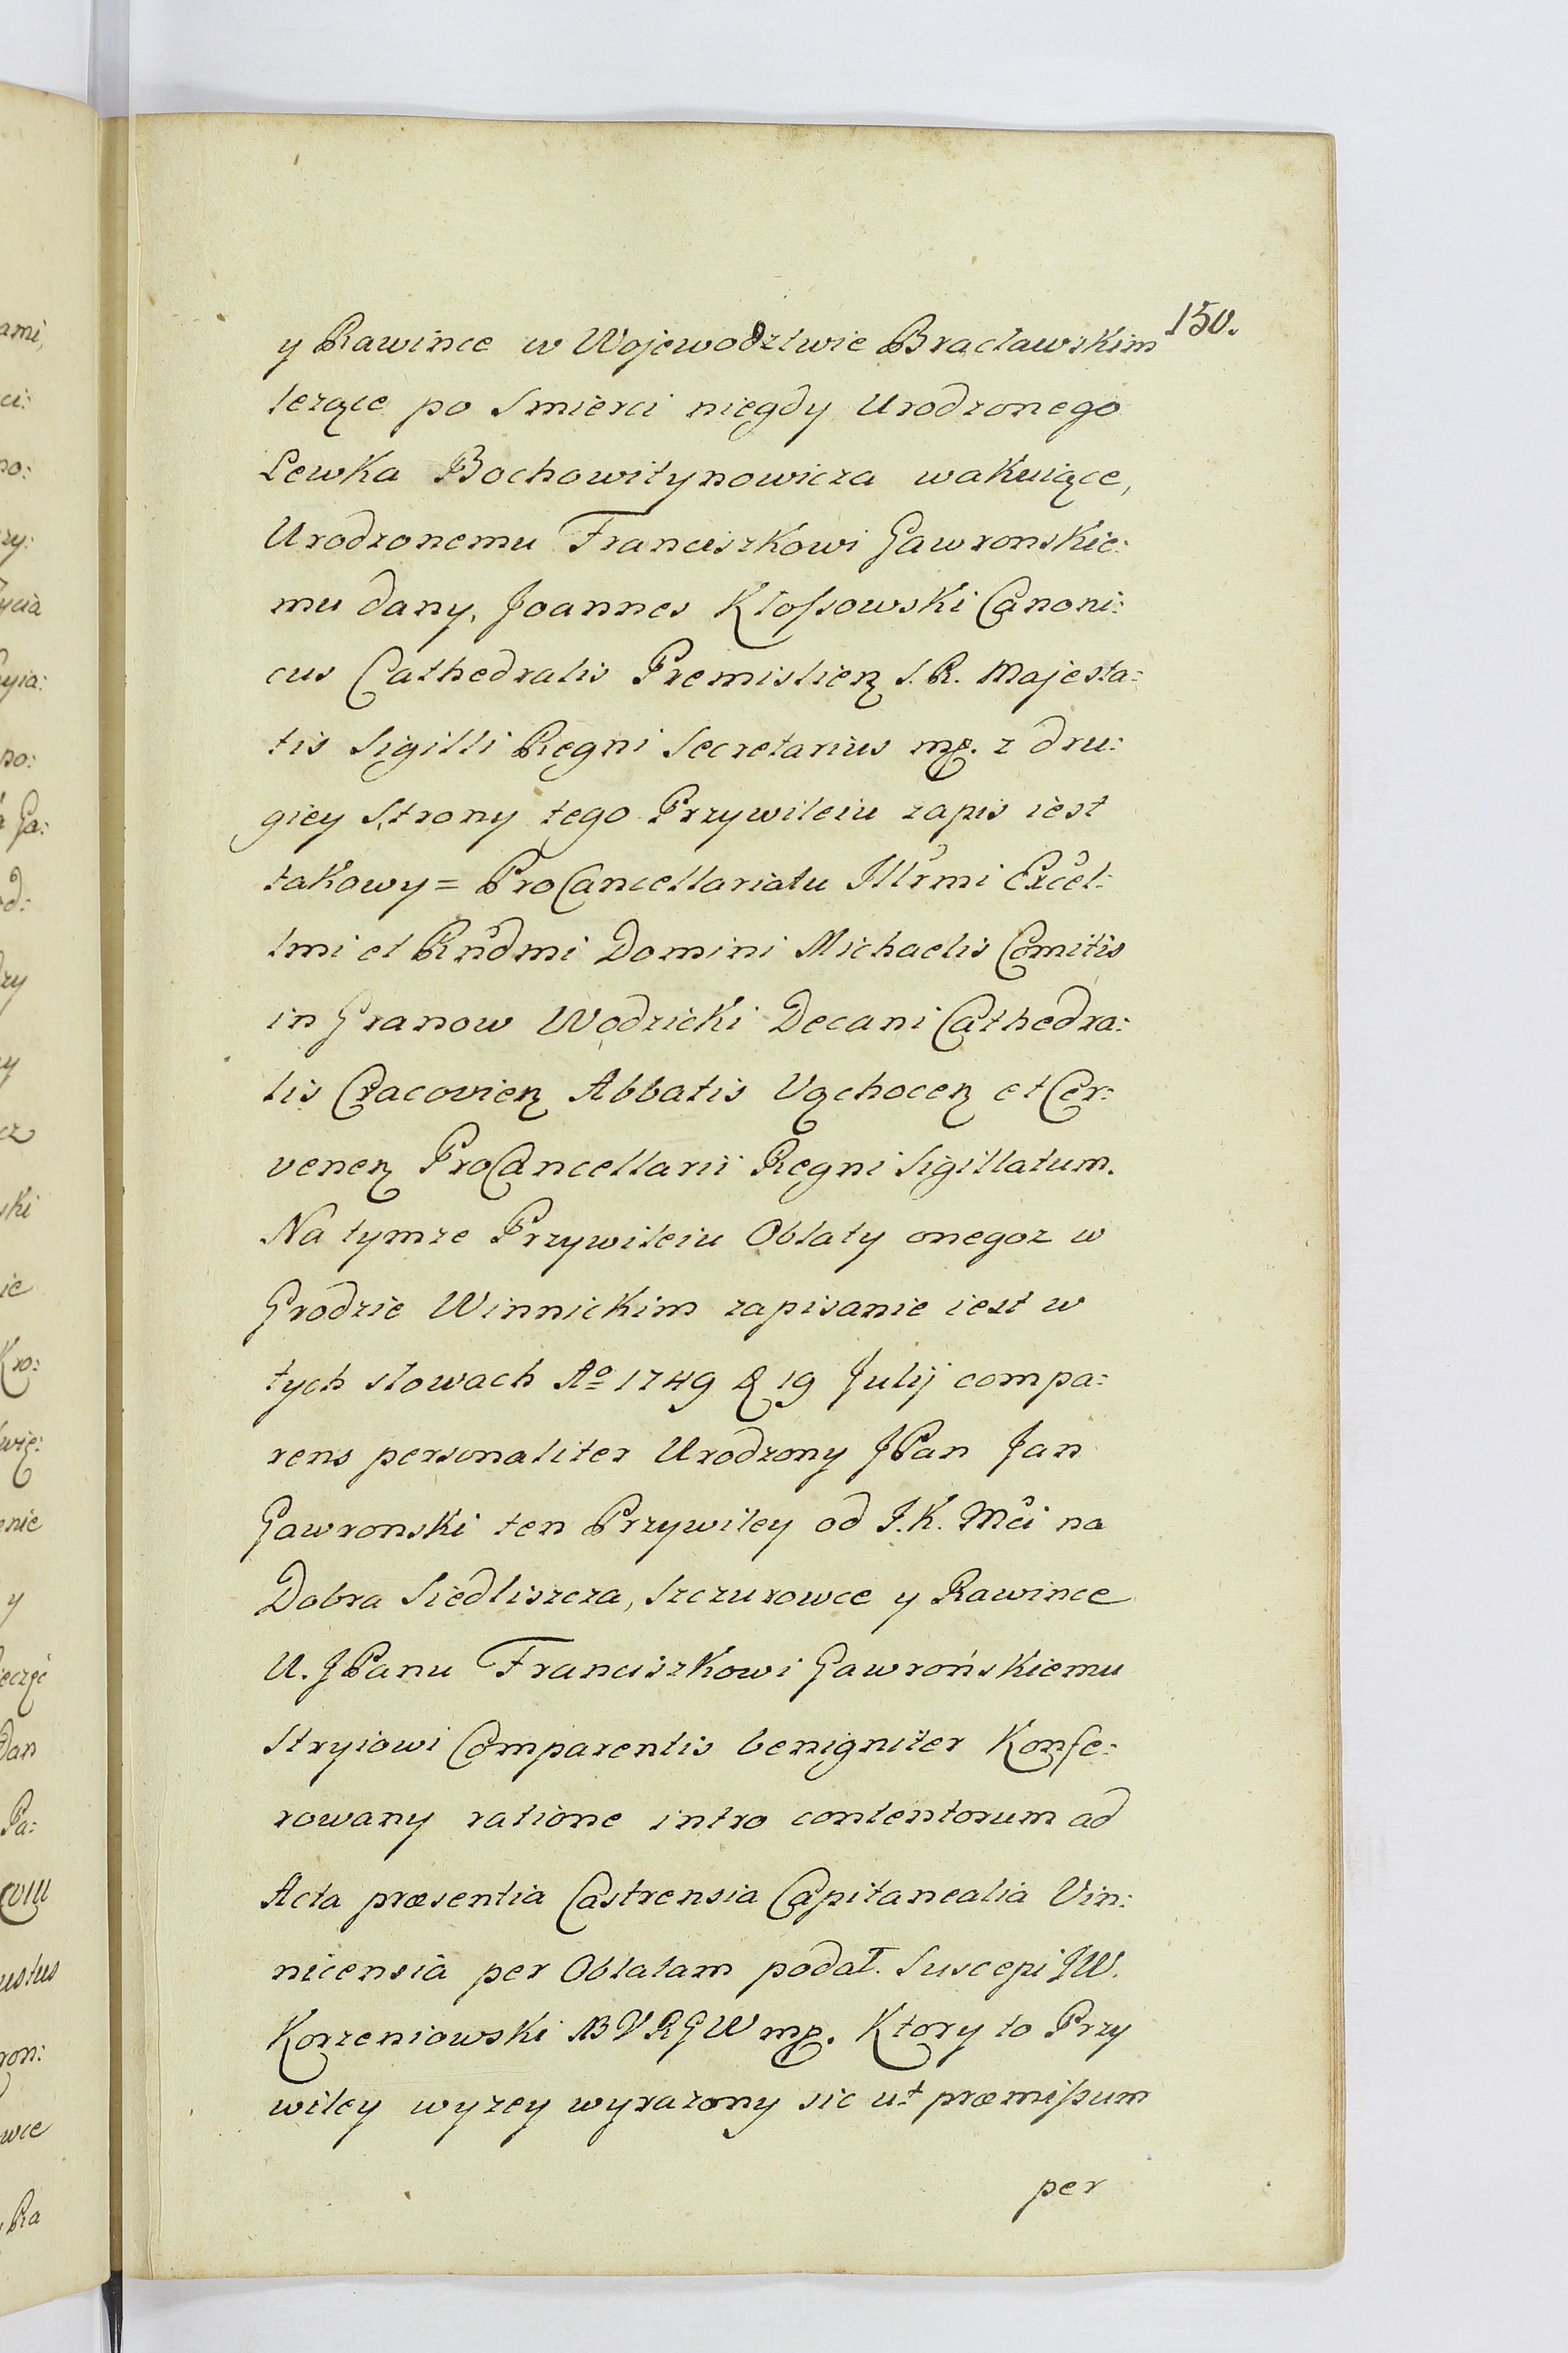 150.
y Rawince w Wojewodztwie Bracławskim
lezące po Smierci niegdy Urodzonego
Lewka Bochowitynowicza wakuiące,
Urodzonemu Franciszkowi Gawronskie:
mu dany, Joannes Kłossowski Canoni:
cus Cathedralis Premislien S. R. Majesta:
tis Sigilli Regni Secretarius mp. z dru:
giey Strony tego Przywileiu zapis iest
takowy = ProCancellariatu Illrmi Excel:
lmi et Rndmi Domini Michaelis Comitis
in Granow Wodzicki Decani Cathedra:
lis Cracovien Abbatis Vąchocen et Cer:
venen ProCancellarii Regni Sigillatum.
Na tymze Przywileiu Oblaty onegoz w
Grodzie Winnickim zapisanie iest w
tych słowach Ao 1749 d 19 Julij compa:
rens personaliter Urodzony JPan Jan
Gawronski ten Przywiley od J. K. Mci na
Dobra Siedliszcza, Szczurowce y Rawince
U. JPanu Franciszkowi Gawrońskiemu
Stryiowi Comparentis benigniter Konfe:
rowany ratione intro contentorum ad
Acta præsentia Castrensia Capitanealia Vin:
nicensia per Oblatam podał. Suscepi JW.
Korzeniowski NBVRGW mp. Ktory to Przy
wiley wyzey wyrazony sic ut præmissum
per